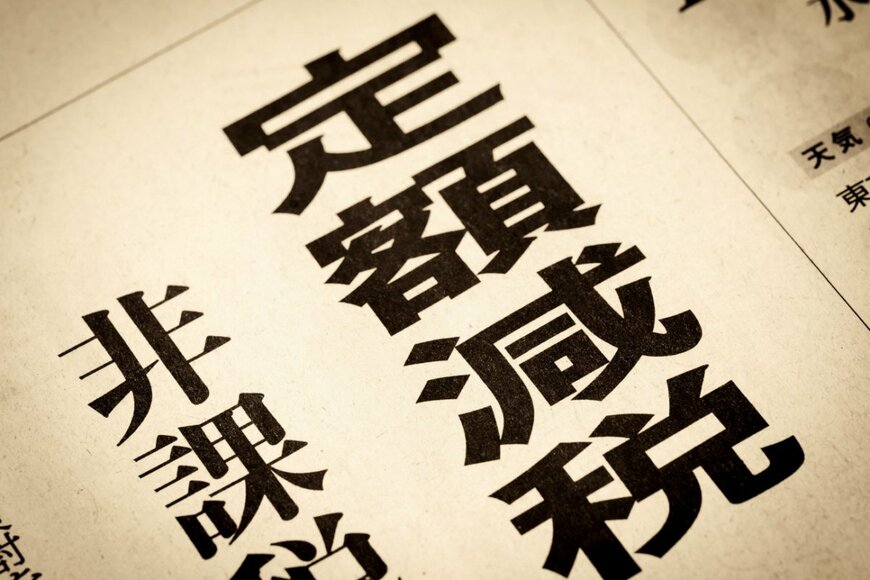 天気
東
定額減税
非課税